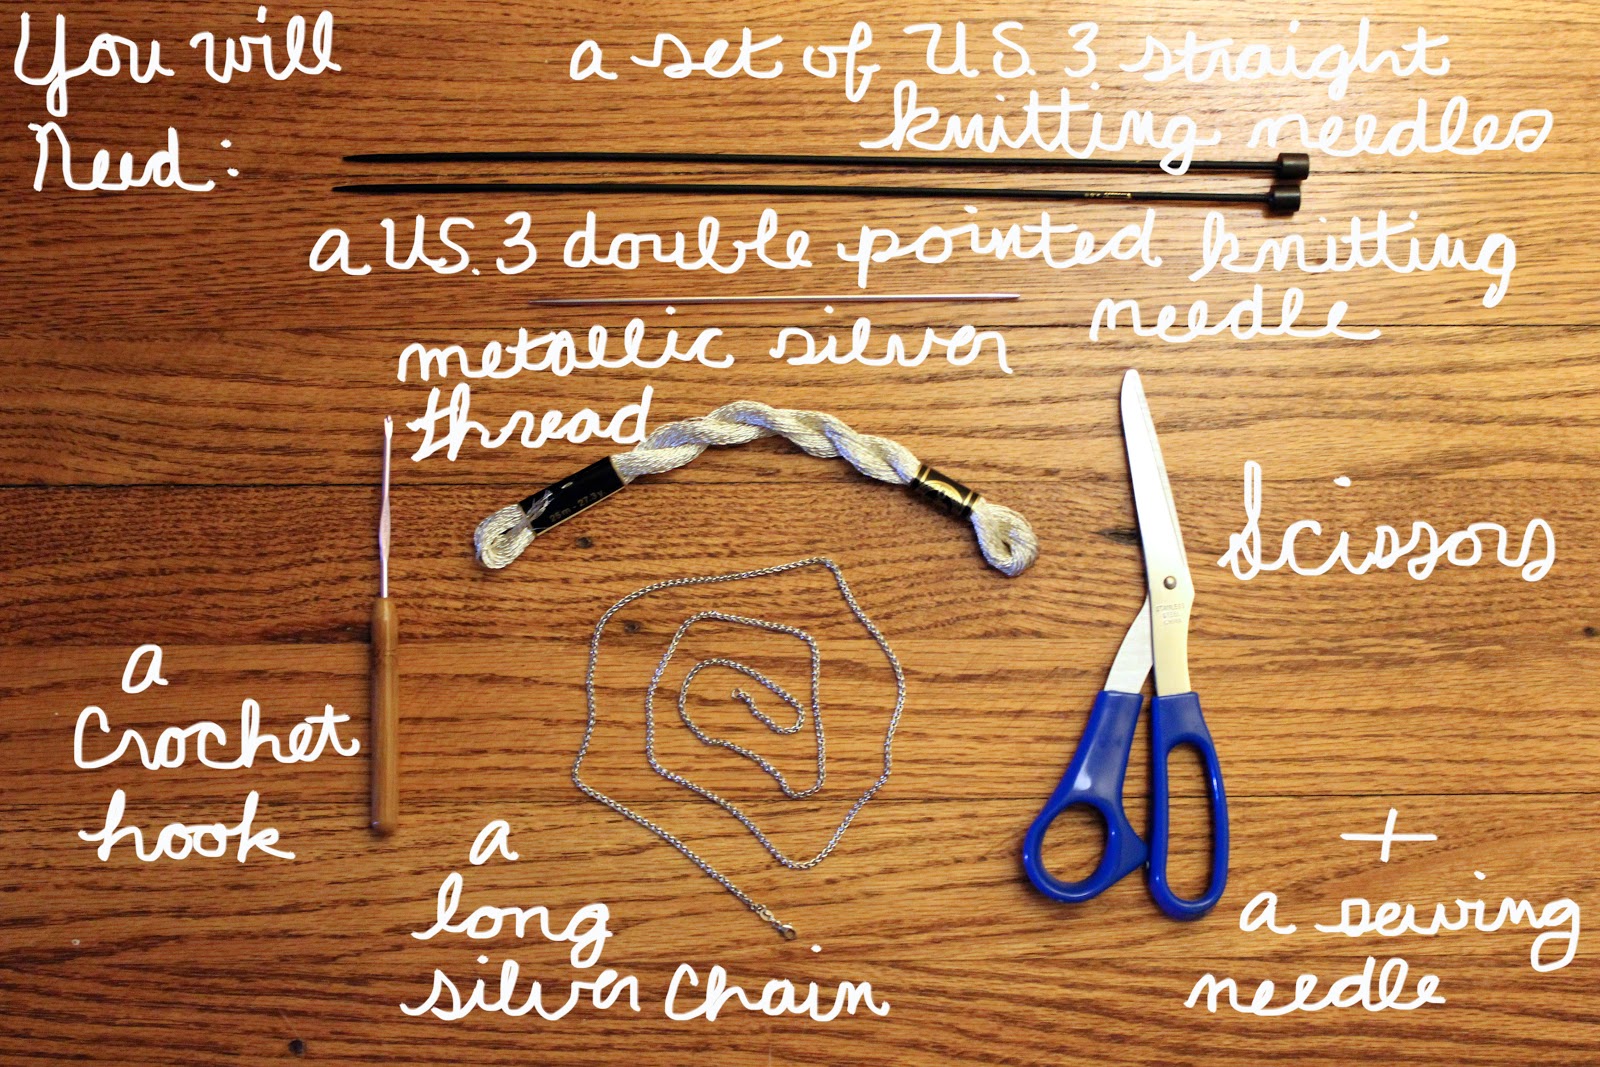 You will
Need:
a set of U.S. 3 straight
knitting needles
a US. 3 double pointed knitting
needle
metallic silver
thread
25m - 27.3y
Scissors
a
Crochet
hook
a
long
silver Chain
+
a sewing
needle